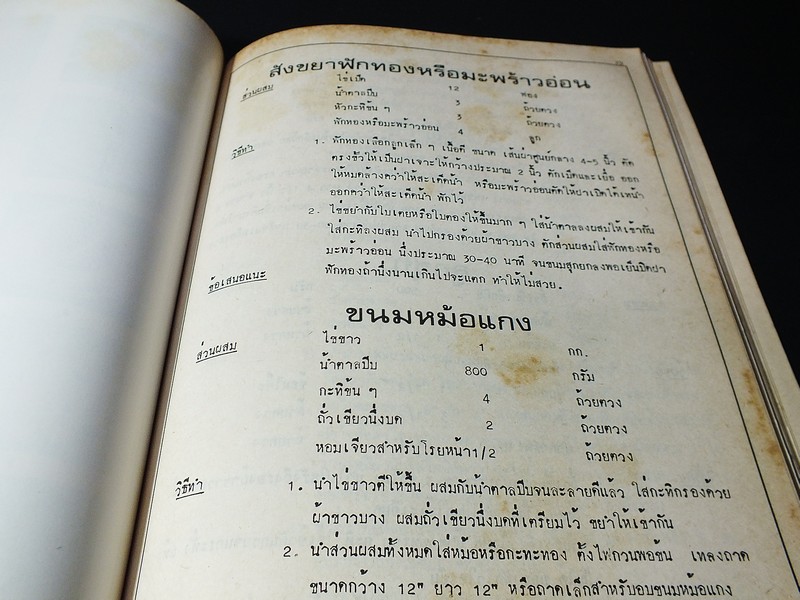 สังขยาฟักทองหรือมะพร้าวอ่อน
ส่วนผสม ไข่เป็ด 12 ฟอง
น้ำตาลปีบ 3 ถ้วยตวง
หัวกะทิข้น ๆ 3 ถ้วยตวง
ฟักทองหรือมะพร้าวอ่อน 4 ลูก
วิธีทำ 1. ฟักทองเลือกลูกเล็ก ๆ เนื้อดี ขนาด เส้นผ่าศูนย์กลาง 4-5 นิ้ว ตัด
ตรงขั้วให้เป็นฝาเจาะให้กว้างประมาณ 2 นิ้ว ตักเม็ดและเยื่อ ออก
ให้หมดล้างคว่ำให้สะเด็ดน้ำ หรือมะพร้าวอ่อนตัดให้ฝาเปิดได้เทน้ำ
ออกคว่ำให้สะเด็ดน้ำ พักไว้
2. ไข่ขยำกับใบเตยหรือใบตองให้ขึ้นมาก ๆ ใส่น้ำตาลลงผสมให้เข้ากัน
ใส่กะทิลงผสม นำไปกรองด้วยผ้าขาวบาง ตักส่วนผสมใส่ฟักทองหรือ
มะพร้าวอ่อน นึ่งประมาณ 30-40 นาที จนขนมสุกยกลงพอเย็นปิดฝา
ข้อเสนอแนะ ฟักทองถ้านึ่งนานเกินไปจะแตก ทำให้ไม่สวย.
ขนมหม้อแกง
ส่วนผสม ไข่ขาว 1 กก.
น้ำตาลปีบ 800 กรัม
กะทิข้น ๆ 4 ถ้วยตวง
ถั่วเขียวนึ่งบด 2 ถ้วยตวง
หอมเจียวสำหรับโรยหน้า 1/2 ถ้วยตวง
วิธีทำ 1. นำไข่ขาวตีให้ขึ้น ผสมกับน้ำตาลปีบจนละลายดีแล้ว ใส่กะทิกรองด้วย
ผ้าขาวบาง ผสมถั่วเขียวนึ่งบดที่เตรียมไว้ ขยำให้เข้ากัน
2. นำส่วนผสมทั้งหมดใส่หม้อหรือกะทะทอง ตั้งไฟกวนพอข้น เทลงถาด
ขนาดกว้าง 12" ยาว 12" หรือถาดเล็กสำหรับอบขนมหม้อแกง